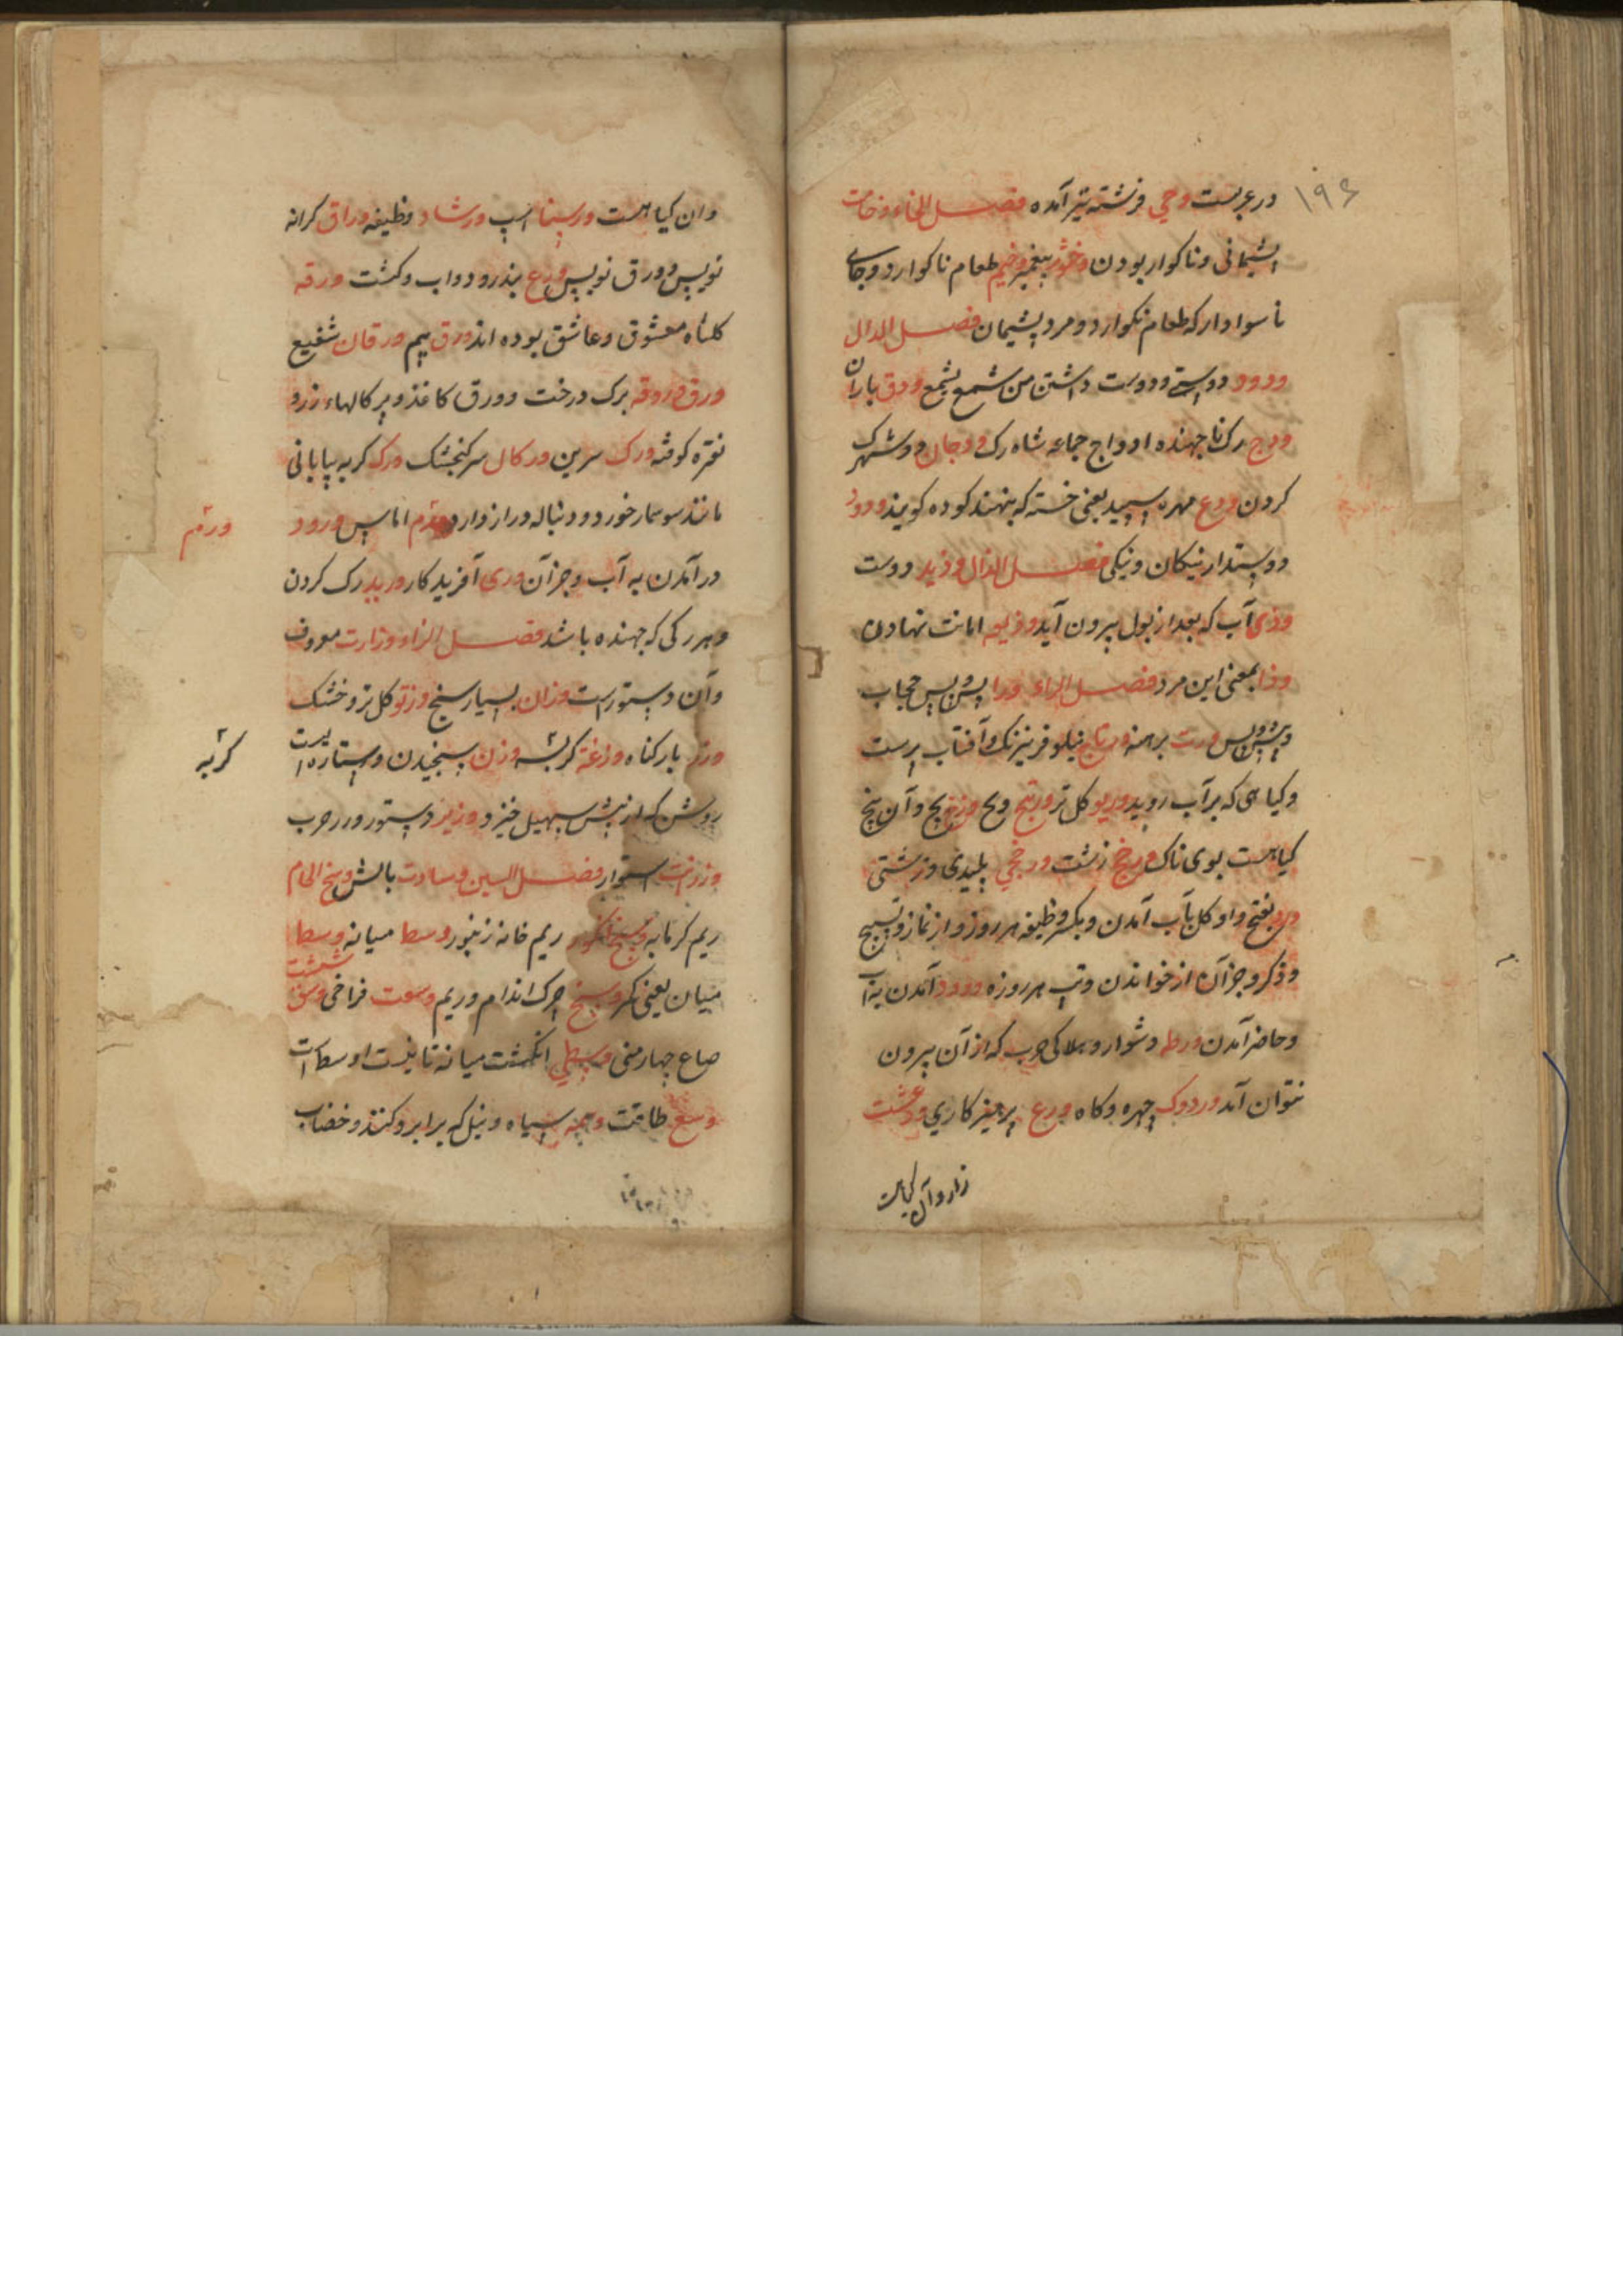 ۱۹۶
در عربست وحی فرشته نیز آمده فصل الخاء وخامت
پشیمانی و ناکوار بودن وخشور پیغمبر وخیم طعام ناکوارد و جای
ناسوادار که طعام نکوارد و مرد پشیمان فصل الدال
ودود دوستی و دوست داشتن من سمع یسمع ودق باران
ودج رک ناجهنده اوداج جماعه شاه رک ودجان دو شهرک
کردن ودع مهره سپید یعنی خسته که نهند کوده کویند ودود
دوستدار نیکان و نیکی فصل الذال وذید دوست
وذی آب که بعد از بول بیرون آید وذیعه امانت نهادن
وذا بمعنی این مرد فصل الراء ورا پیش پس حجاب
و پیش و پس ورت برهنه ورتاج نیلوفر نیزنک و آفتاب پرست
و کیاهی که بر آب روید وریو کل تر ورتیج وج وزغیج و آن بیخ
کیاهست بوی ناک ورخج زشت ورخجی پلیدی و زشتی
ورد بفتح واو کل بآب آمدن و بکسر وظیفه هر روز و از نماز و تسبیح
و ذکر و جز آن از خواندن و تب هر روزه ورود آمدن به آب
و حاضر آمدن ورطه دشوار و هلاکی حرب که از آن بیرون
نتوان آمد وردوک چهره و کاه ورع پرهیزکاری ودعشت
زار و آن کیاهست
وان کیاهست ورسنا اسپ ورشاد وظیفه وراق کرانه
نویس و ورق نویس ورع بذرود و اب و کشت ورقه
کلشاه معشوق و عاشق بوده اند ورق سیم ورقان شفیع
ورق وروقه برک درخت و ورق کاغذ و پرکالهاء زرو
نقره کوفته ورک سرین ورکال سرکنجشک ورک کربه بیابانی
مانند سوسمار خورد و دنباله دراز دارد ورم اماس ورود
ورم
درآمدن به آب و جز آن وری آفریدکار ورید رک کردن
و هر رکی که جهنده باشد فصل الزاء وزارت معروف
و آن دستوریست وزان بسیار سنج وزتو کل تر و خشک
وزر بار کناه وزغة کربسه وزن سنجیدن و ستاره ایست
کربه
روشن که از پیش سهیل خیزد وزیر دستور و در حرب
وزرانت استوار فصل السین وسادت بالش وسخ الحام
ریم کرمابه وسخ الکور ریم خانه زنبور وسط میانه وسط
میان یعنی کمر وسخ چرک اندام و ریم وسعت فراخی وسق شصت
صاع چهارمنی وسطی انکشت میانه تانیث اوسط است
وسع طاقت وسمه سیاه و نیل که بر ابرو کنند و خضاب